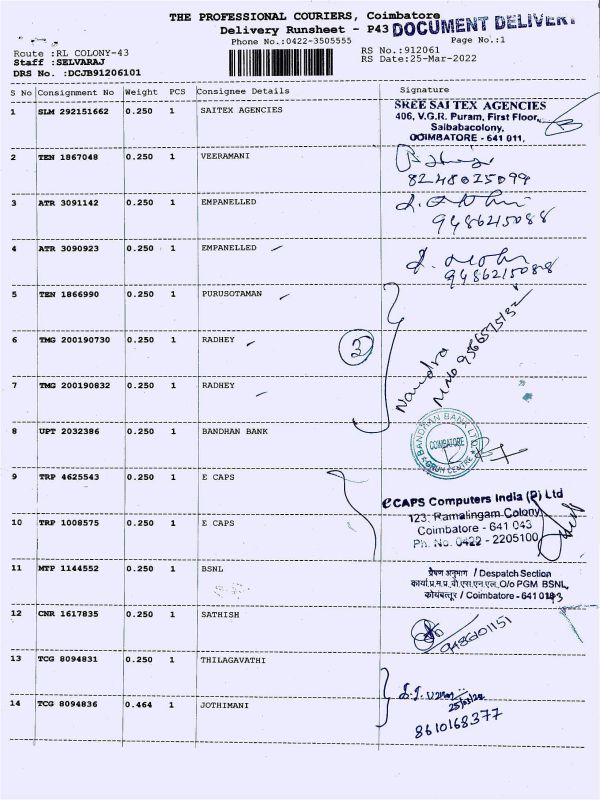 THE PROFESSIONAL COURIERS, Coimbatore
Delivery Runsheet - P43 DOCUMENT DELIVERY
Phone No.:0422-3505555 Page No.:1
Route :RL COLONY-43 RS No.:912061
Staff :SELVARAJ RS Date:25-Mar-2022
DRS No. :DCJB91206101
S No Consignment No Weight PCS Consignee Details Signature
1 SLM 292151662 0.250 1 SAITEX AGENCIES
SREE SAI TEX AGENCIES
406, V.G.R. Puram, First Floor,
Saibabacolony,
COIMBATORE - 641 011.
2 TEN 1867048 0.250 1 VEERAMANI
8248025099
3 ATR 3091142 0.250 1 EMPANELLED
9486215088
4 ATR 3090923 0.250 1 EMPANELLED
9486215088
5 TEN 1866990 0.250 1 PURUSOTAMAN
6 TMG 200190730 0.250 1 RADHEY
3
7 TMG 200190832 0.250 1 RADHEY
8 UPT 2032386 0.250 1 BANDHAN BANK
BANDHAN BANK LTD
COIMBATORE
9 TRP 4625543 0.250 1 E CAPS
eCAPS Computers India (P) Ltd
123, Ramalingam Colony
10 TRP 1008575 0.250 1 E CAPS
Coimbatore - 641 043
Ph. No. 0422 - 2205100
11 MTP 1144552 0.250 1 BSNL
प्रेषण अनुभाग / Despatch Section
कार्या.प्र.म.प्र.बी.एस.एन.एल,O/o PGM BSNL,
कोयंबत्तूर / Coimbatore - 641 043
12 CNR 1617835 0.250 1 SATHISH
13 TCG 8094831 0.250 1 THILAGAVATHI
25/03/22
14 TCG 8094836 0.464 1 JOTHIMANI
8610168377